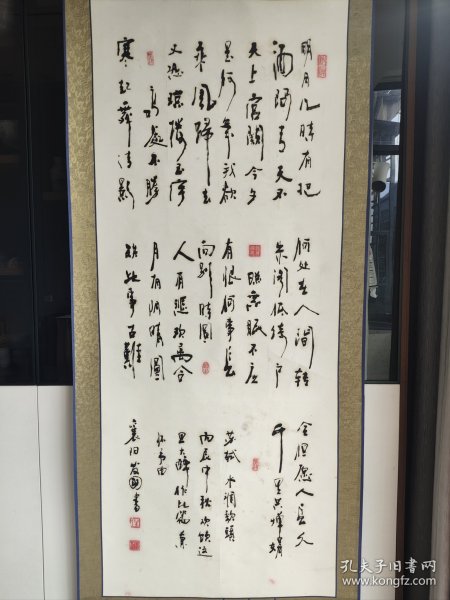 明月几時有把
酒问青天不
天上宫阙今夕
是何年我欲
乘風歸去
又恐瓊樓玉宇
高處不勝
寒起舞清影
何处在人间转
朱阁低绮户
照無眠不应
有恨何事長
向别時圆
人有悲欢离合
月有阴晴圆
缺此事古難
全但愿人長久
千里共婵娟
苏轼 水调歌頭
丙辰中秋欢饮达
旦大醉作此篇兼
怀子由
襄阳 書
孔夫子旧书网
www.kongfz.com